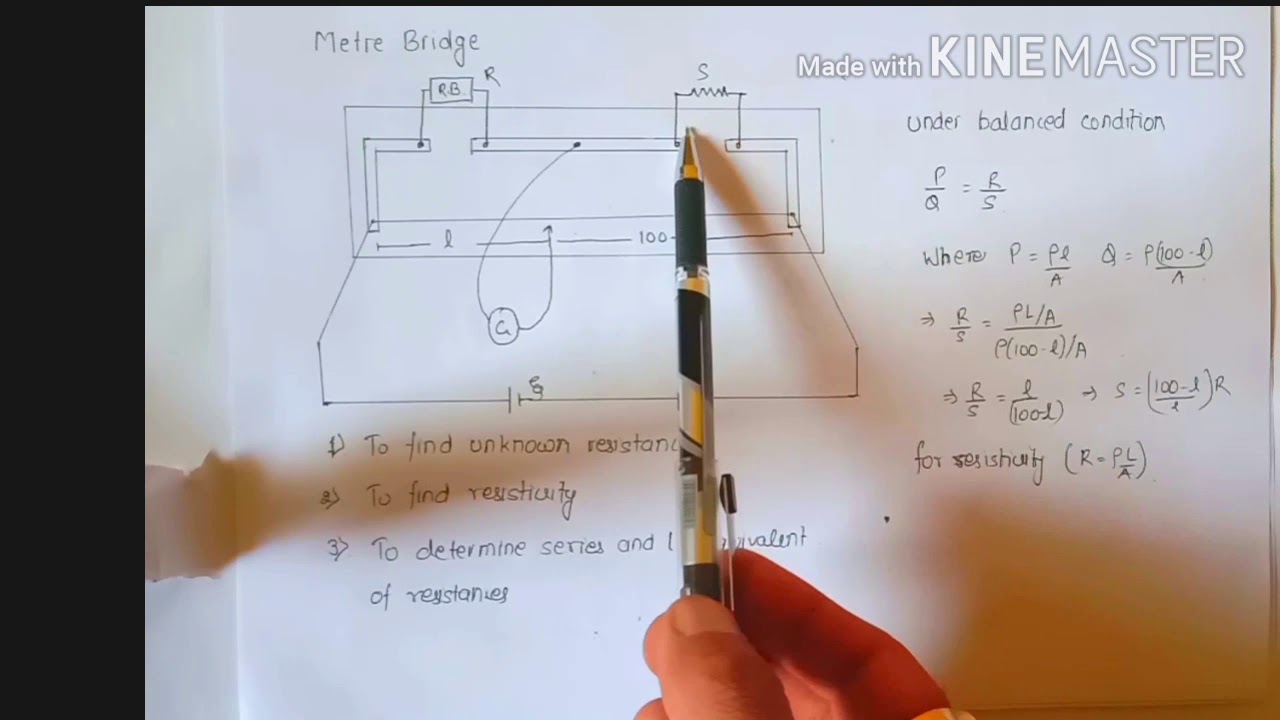 Metre Bridge
Made with KINEMASTER
R.B.
R
S
l
100-
G
ξ
1) To find unknown resistanc
2) To find resisticity
3) To determine series and
ivalent
of resistances
under balanced condition
P/Q = R/S
Where P = ρl/A Q = ρ(100-l)/A
⇒ R/S = ρL/A / ρ(100-l)/A
⇒ R/S = l/(100-l) ⇒ S = (100-l/l)R
for resisticity (R = ρL/A)